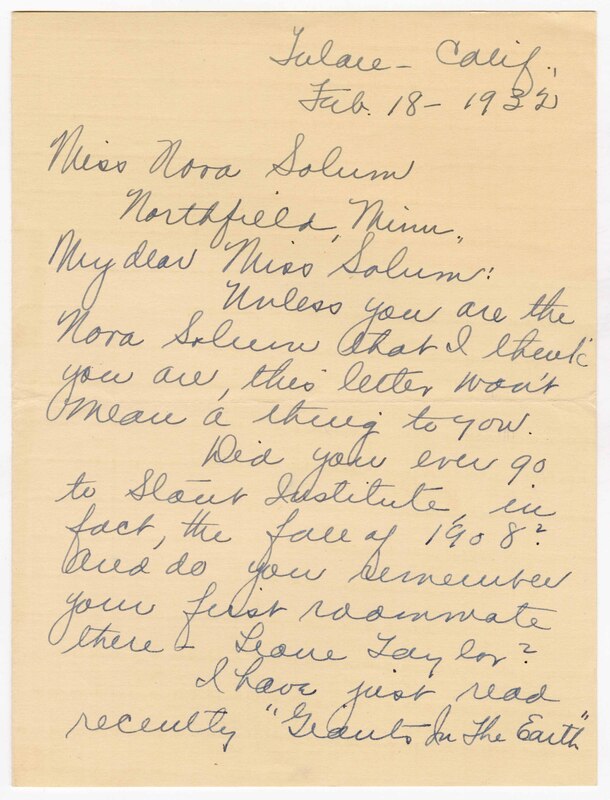 Tulare - Calif.,
Feb. 18 - 1932
Miss Nora Solum
Northfield, Minn.,
My dear Miss Solum:
Unless you are the
Nora Solum that I think
you are, this letter won't
mean a thing to you.
Did you ever go
to Stout Institute, in
fact, the fall of 1908?
And do you remember
your first roommate
there - Leone Taylor?
I have just read
recently "Giants In The Earth"